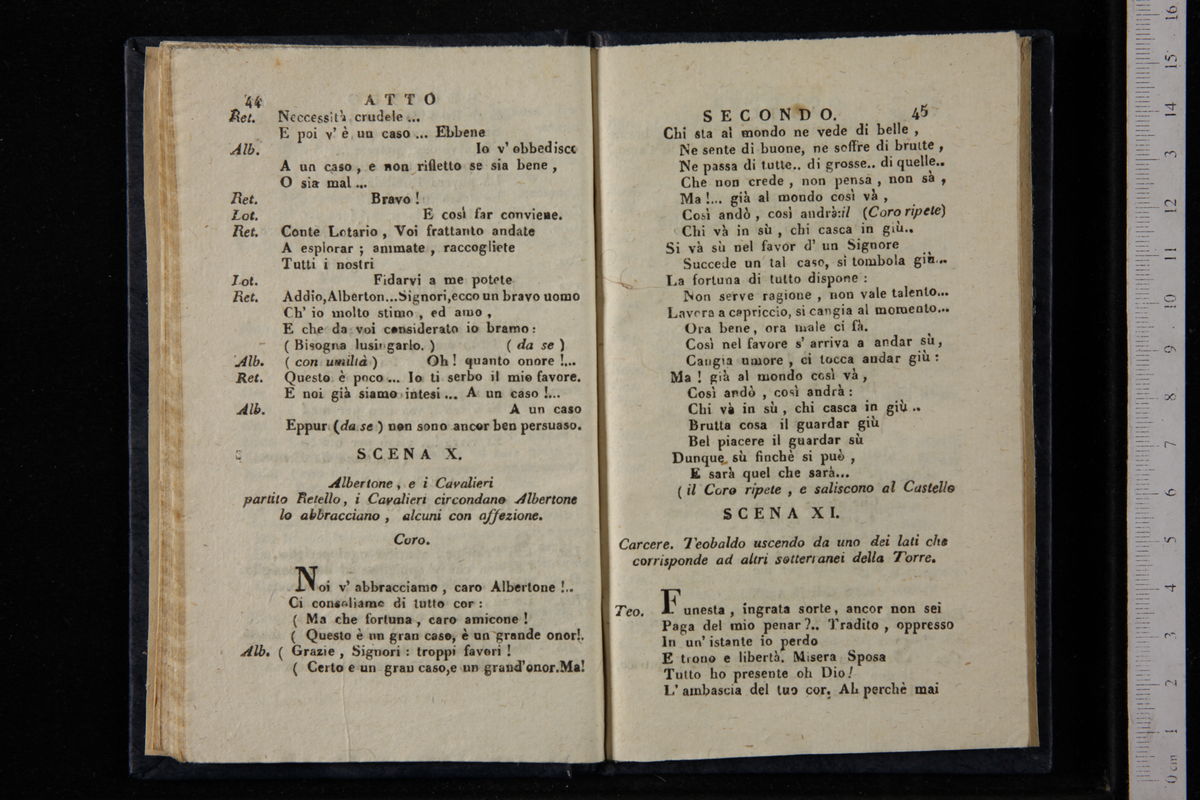 44
ATTO
Ret. Neccessità crudele ...
E poi v' è un caso ... Ebbene
Alb. Io v' obbedisco
A un caso , e non rifletto se sia bene ,
O sia mal ...
Ret. Bravo !
Lot. E così far conviene.
Ret. Conte Lotario , Voi frattanto andate
A esplorar ; animate , raccogliete
Tutti i nostri
Lot. Fidarvi a me potete
Ret. Addio,Alberton...Signori,ecco un bravo uomo
Ch' io molto stimo , ed amo ,
E che da voi considerato io bramo :
( Bisogna lusingarlo. ) ( da se )
Alb. ( con umiltà ) Oh ! quanto onore !...
Ret. Questo è poco ... Io ti serbo il mio favore.
E noi già siamo intesi ... A un caso !...
Alb. A un caso
Eppur (da se ) non sono ancor ben persuaso.
SCENA X.
Albertone , e i Cavalieri
partito Retello, i Cavalieri circondano Albertone
lo abbracciano , alcuni con affezione.
Coro.
Noi v' abbracciamo , caro Albertone !..
Ci consoliamo di tutto cor :
( Ma che fortuna , caro amicone !
( Questo è un gran caso, è un grande onor!.
Alb. ( Grazie , Signori : troppi favori !
( Certo e un grau caso,e un grand'onor.Ma!
SECONDO.
45
Chi sta al mondo ne vede di belle ,
Ne sente di buone, ne soffre di brutte ,
Ne passa di tutte.. di grosse.. di quelle..
Che non crede , non pensa , non sà ,
Ma !... già al mondo così và ,
Così andò , così andrà:il (Coro ripete)
Chi và in sù , chi casca in giù..
Si và sù nel favor d' un Signore
Succede un tal caso, si tombola giù...
La fortuna di tutto dispone :
Non serve ragione , non vale talento...
Lavora a capriccio, si cangia al momento...
Ora bene, ora male ci fà.
Così nel favore s' arriva a andar sù,
Cangia umore , ci tocca andar giù :
Ma ! già al mondo così và ,
Così andò , così andrà :
Chi và in sù , chi casca in giù ..
Brutta cosa il guardar giù
Bel piacere il guardar sù
Dunque sù finchè si può ,
E sarà quel che sarà...
( il Coro ripete , e saliscono al Castello
SCENA XI.
Carcere. Teobaldo uscendo da uno dei lati che
corrisponde ad altri sotterranei della Torre.
Teo. Funesta , ingrata sorte, ancor non sei
Paga del mio penar ?.. Tradito , oppresso
In un' istante io perdo
E trono e libertà. Misera Sposa
Tutto ho presente oh Dio !
L' ambascia del tuo cor. Ah perchè mai
0 cm 1 2 3 4 5 6 7 8 9 10 11 12 13 14 15 16